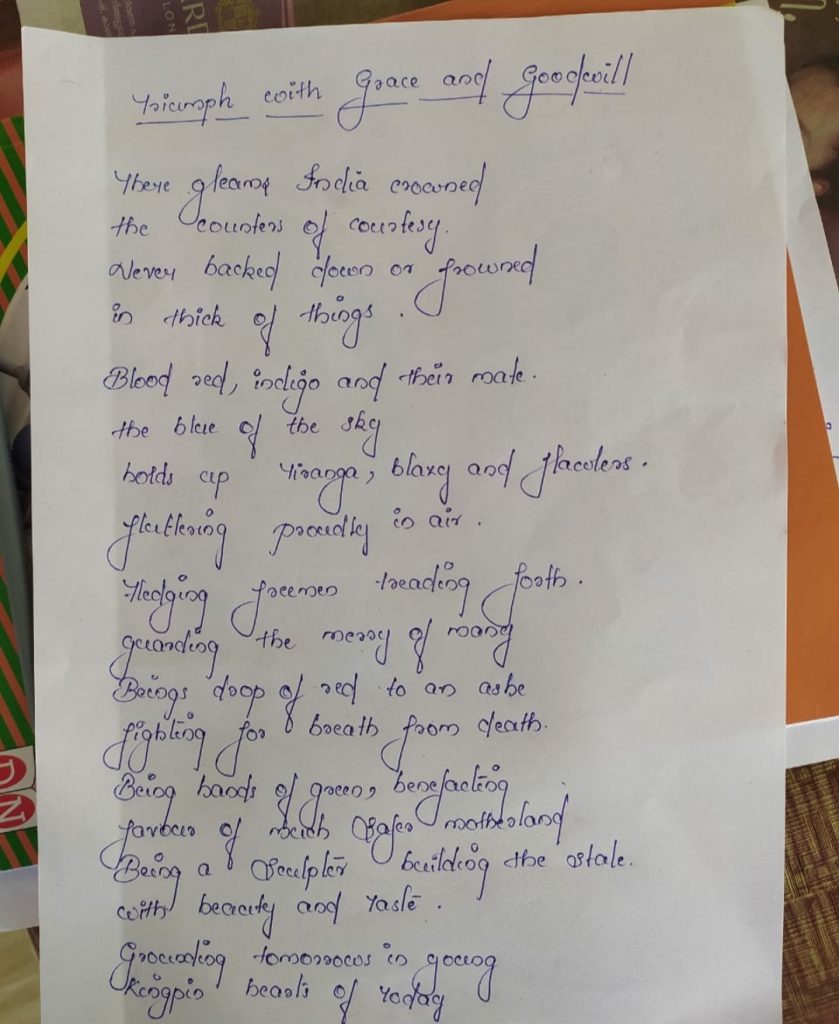 Triumph with Grace and Goodwill
There gleams India crowned
the counters of courtesy.
Never backed down or frowned
in thick of things.
Blood red, indigo and their mate.
the blue of the sky
holds up Tiranga, blaxy and flawless.
fluttering proudly in air.
Fledging freemen treading forth.
guarding the merry of many
Beings drop of red to an ashe
fighting for breath from death.
Being hands of green, benefacting
favour of much Safer motherland
Being a Sculpter building the state.
with beauty and taste.
Grounding tomorrows in young
Kingpin beasts of today
DN